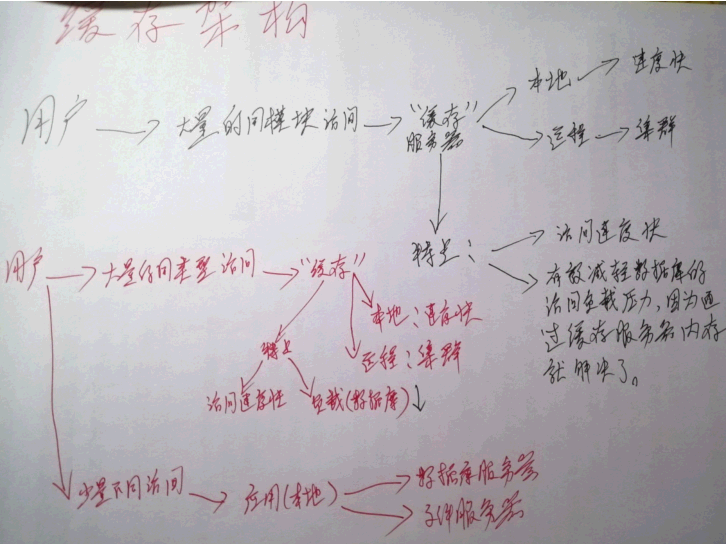 缓存架构
用户 → 大量的同模块访问 → "缓存"服务器
本地 → 速度快
远程 → 集群
特点:
访问速度快
有效减轻数据库的
访问负载压力,因为通
过缓存服务器内存
就解决了。
用户 → 大量的同类型访问 → "缓存"
本地:速度快
远程:集群
特点
访问速度快
负载(数据库)↓
少量不同访问 → 应用(本地)
数据库服务器
文件服务器